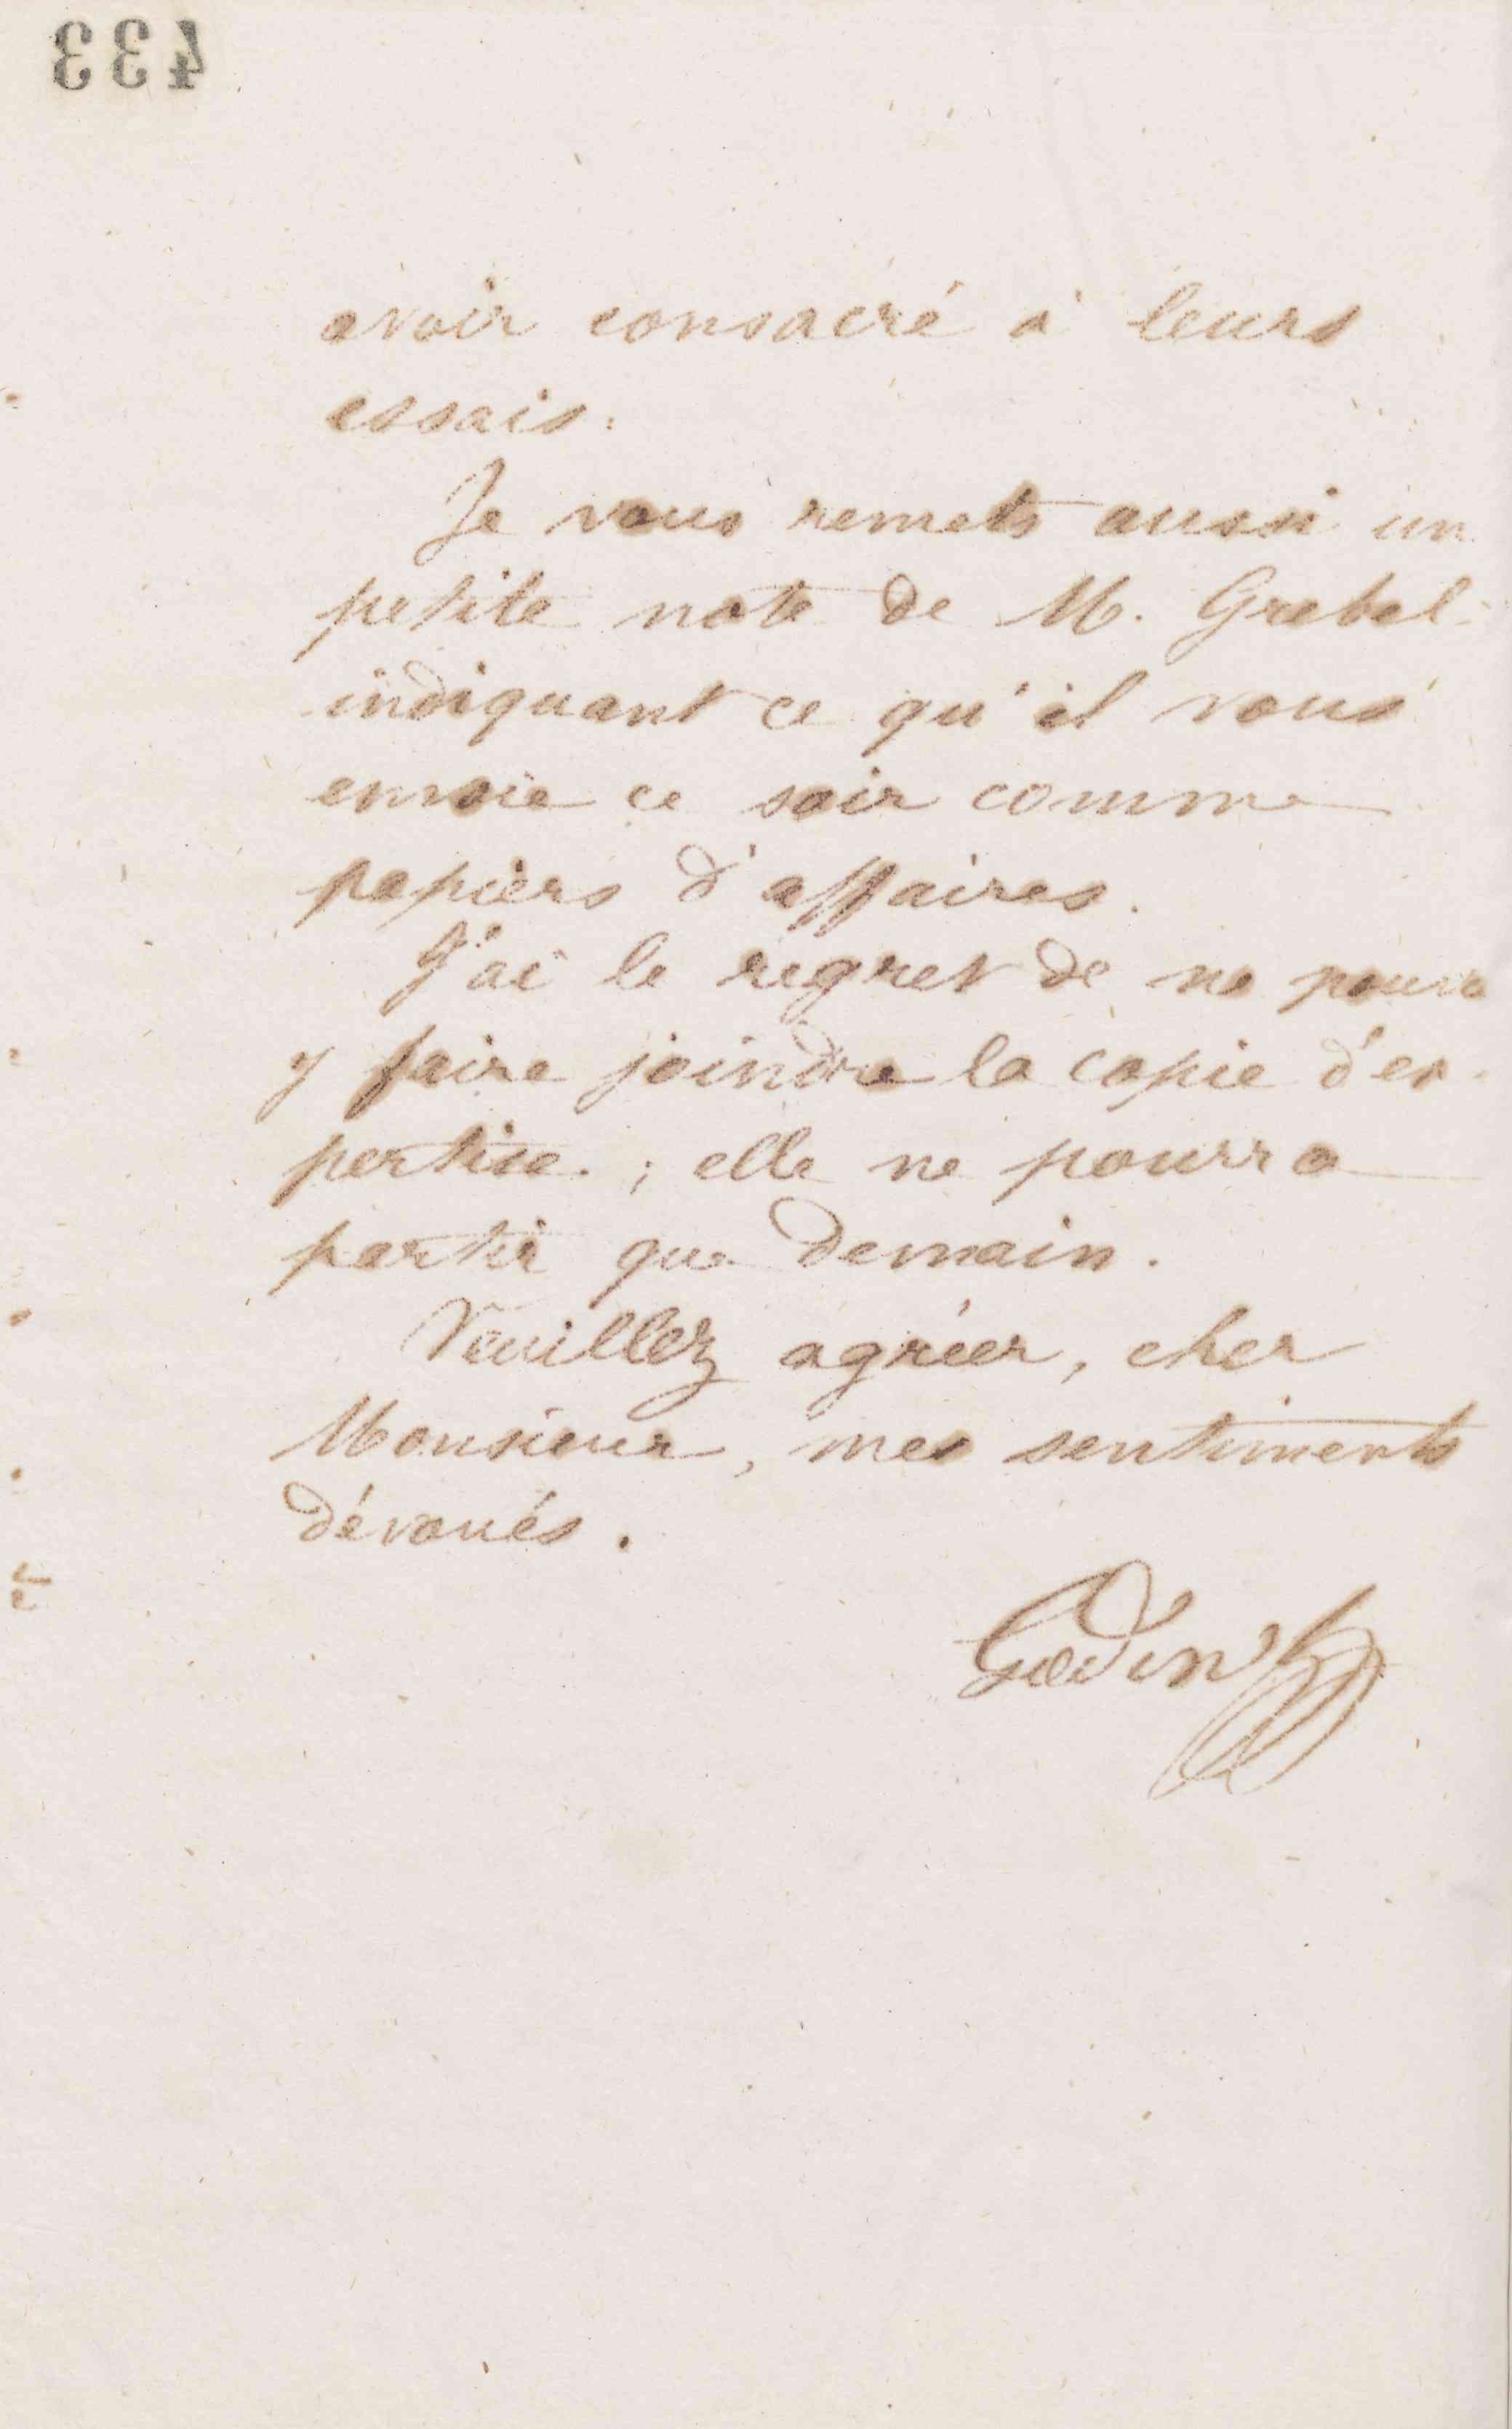 433
avoir consacré à leurs
essais.
Je vous remets aussi un
petite note de M. Grebel
indiquant ce qu'il vous
envoie ce soir comme
papiers d'affaires.
J'ai le regret de ne
y faire joindre la copie d'ex-
pertise. ; elle ne pourra
partir que demain.
Veuillez agréer, cher
Monsieur, mes sentiments
dévoués.
Godin